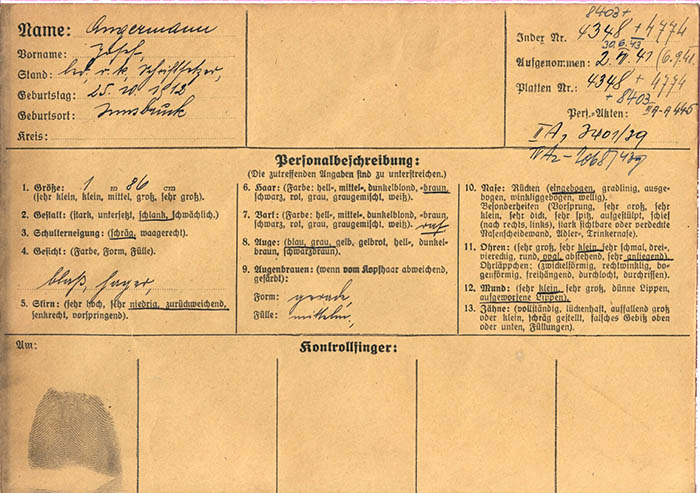 8403 +
Name: Angermann
Index Nr. 4348 + 4774
Vorname: Josef,
30.6.43
Aufgenommen: 2. VI. 41 (6.9.41.
Stand: led. r. k. Schriftsetzer,
Geburtstag: 25. 10. 1912
Platten Nr.: 4348 + 4774
+ 8403
Geburtsort: Innsbruck
Kreis:
Pers.-Akten:
II A, 3401/39
Personalbeschreibung:
(Die zutreffenden Angaben sind zu unterstreichen.)
1. Größe: 1 m 86 cm
(sehr klein, klein, mittel, groß, sehr groß).
2. Gestalt: (stark, untersetzt, schlank, schwächlich.)
3. Schulterneigung: (schräg, waagerecht).
4. Gesicht: (Farbe, Form, Fülle).
blaß, hager,
5. Stirn: (sehr hoch, sehr niedrig, zurückweichend,
senkrecht, vorspringend).
6. Haar: (Farbe: hell-, mittel-, dunkelblond, -braun,
schwarz, rot, grau, graugemischt, weiß).
7. Bart: (Farbe: hell-, mittel-, dunkelblond, -braun,
schwarz, rot, grau, graugemischt, weiß).
8. Auge: (blau, grau, gelb, gelbrot, hell-, dunkel-
braun, schwarzbraun).
9. Augenbrauen: (wenn vom Kopfhaar abweichend,
gefärbt):
Form: gerade,
Fülle: mitteln,
10. Nase: Rücken (eingebogen, gradlinig, ausge-
bogen, winkliggebogen, wellig).
Besonderheiten (Vorsprung, sehr groß, sehr
klein, sehr dick, sehr spitz, aufgestülpt, schief
(nach rechts, links), stark sichtbare oder verdeckte
Nasenscheidewand, Adler-, Trinkernase).
11. Ohren: (sehr groß, sehr klein, sehr schmal, drei-,
viereckig, rund, oval, abstehend, sehr anliegend).
Ohrläppchen: (zwickelförmig, rechtwinklig, bo-
genförmig, freihängend, durchlocht, durchrissen).
12. Mund: (sehr klein, sehr groß, dünne Lippen,
aufgeworfene Lippen).
13. Zähne: (vollständig, lückenhaft, auffallend groß
oder klein, schräg gestellt, falsches Gebiß oben
oder unten, Füllungen).
Am:
Kontrollfinger: